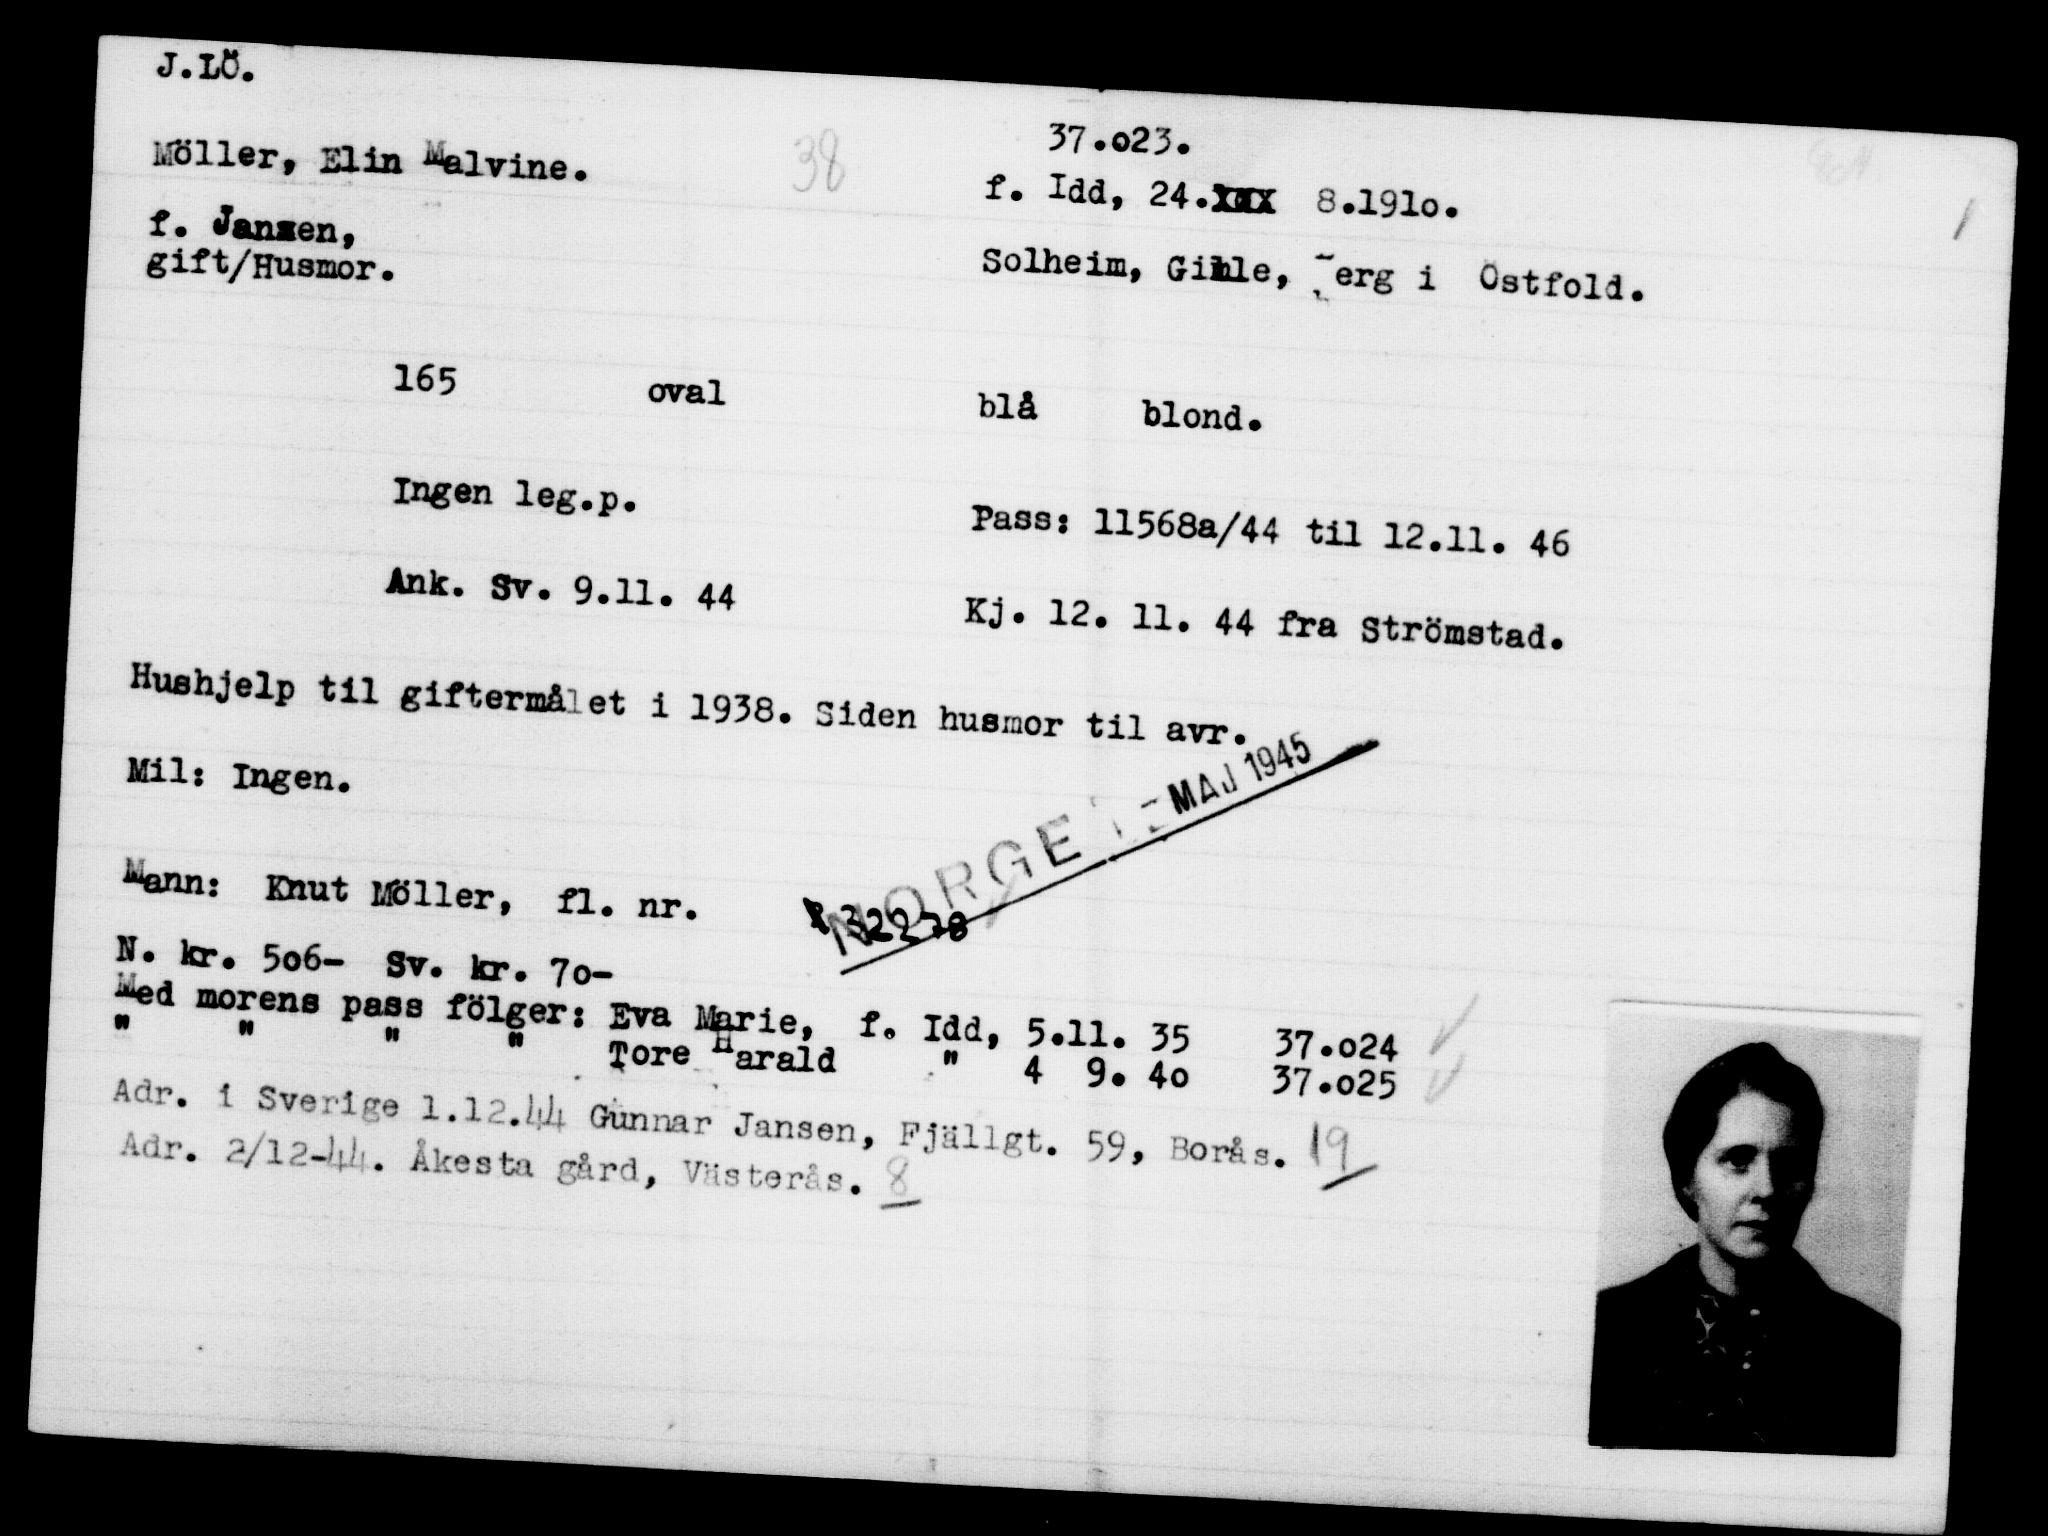 J.LÖ.
37.o23.
Möller, Elin Malvine. 38
f. Idd, 24.xxx 8.191o.
f. Jansen,
gift/Husmor.
Solheim, Gimle, erg i Östfold.
165 oval blå blond.
Ingen leg.p. Pass: 11568a/44 til 12.11. 46
Ank. Sv. 9.11. 44 Kj. 12. 11. 44 fra Strömstad.
Hushjelp til giftermålet i 1938. Siden husmor til avr.
Mil: Ingen.
NORGE MAJ 1945
Mann: Knut Möller, fl. nr. 32278
N. kr. 5o6- Sv. kr. 7o-
Med morens pass fölger: Eva Marie, f. Idd, 5.11. 35 37.o24
" " " " Tore Harald " 4 9. 4o 37.o25
Adr. i Sverige 1.12.44 Gunnar Jansen, Fjällgt. 59, Borås. 19
Adr. 2/12-44. Åkesta gård, Västerås. 8